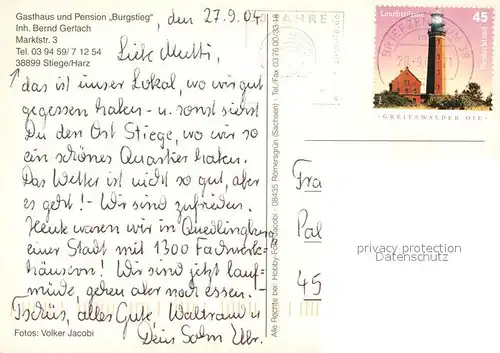 Gasthaus und Pension „Burgstieg"
Inh. Bernd Gerlach
Marktstr. 3
Tel. 03 94 59/ 7 12 54
38899 Stiege/Harz
, den 27.9.04
Liebe Mutti,
das ist unser Lokal, wo wir gut
gegessen haben - u. sonst siehst
Du den Ort Stiege, wo wir so
ein schönes Quartier haben.
Das Wetter ist nicht so gut, aber
es geht! - Wir sind zufrieden.
Heute waren wir in Quedlinburg
einer Stadt mit 1300 Fachwerk-
häusern! Wir sind jetzt lauf-
müde, gehen aber noch essen.
Tschüs, alles Gute, Waltraud u.
Dein Sohn Ulr.
Fotos: Volker Jacobi
Alle Rechte bei: Hobby-Foto Jacobi - 08435 Römersgrün (Sachsen) - Tel./Fax 03 76 00/33 18
JAHRE
Leuchttürme
45
Deutschland
BRIEFZENTRUM 38
-GREIFSWALDER OIE-
Fra
Pal
45
privacy protection
Datenschutz